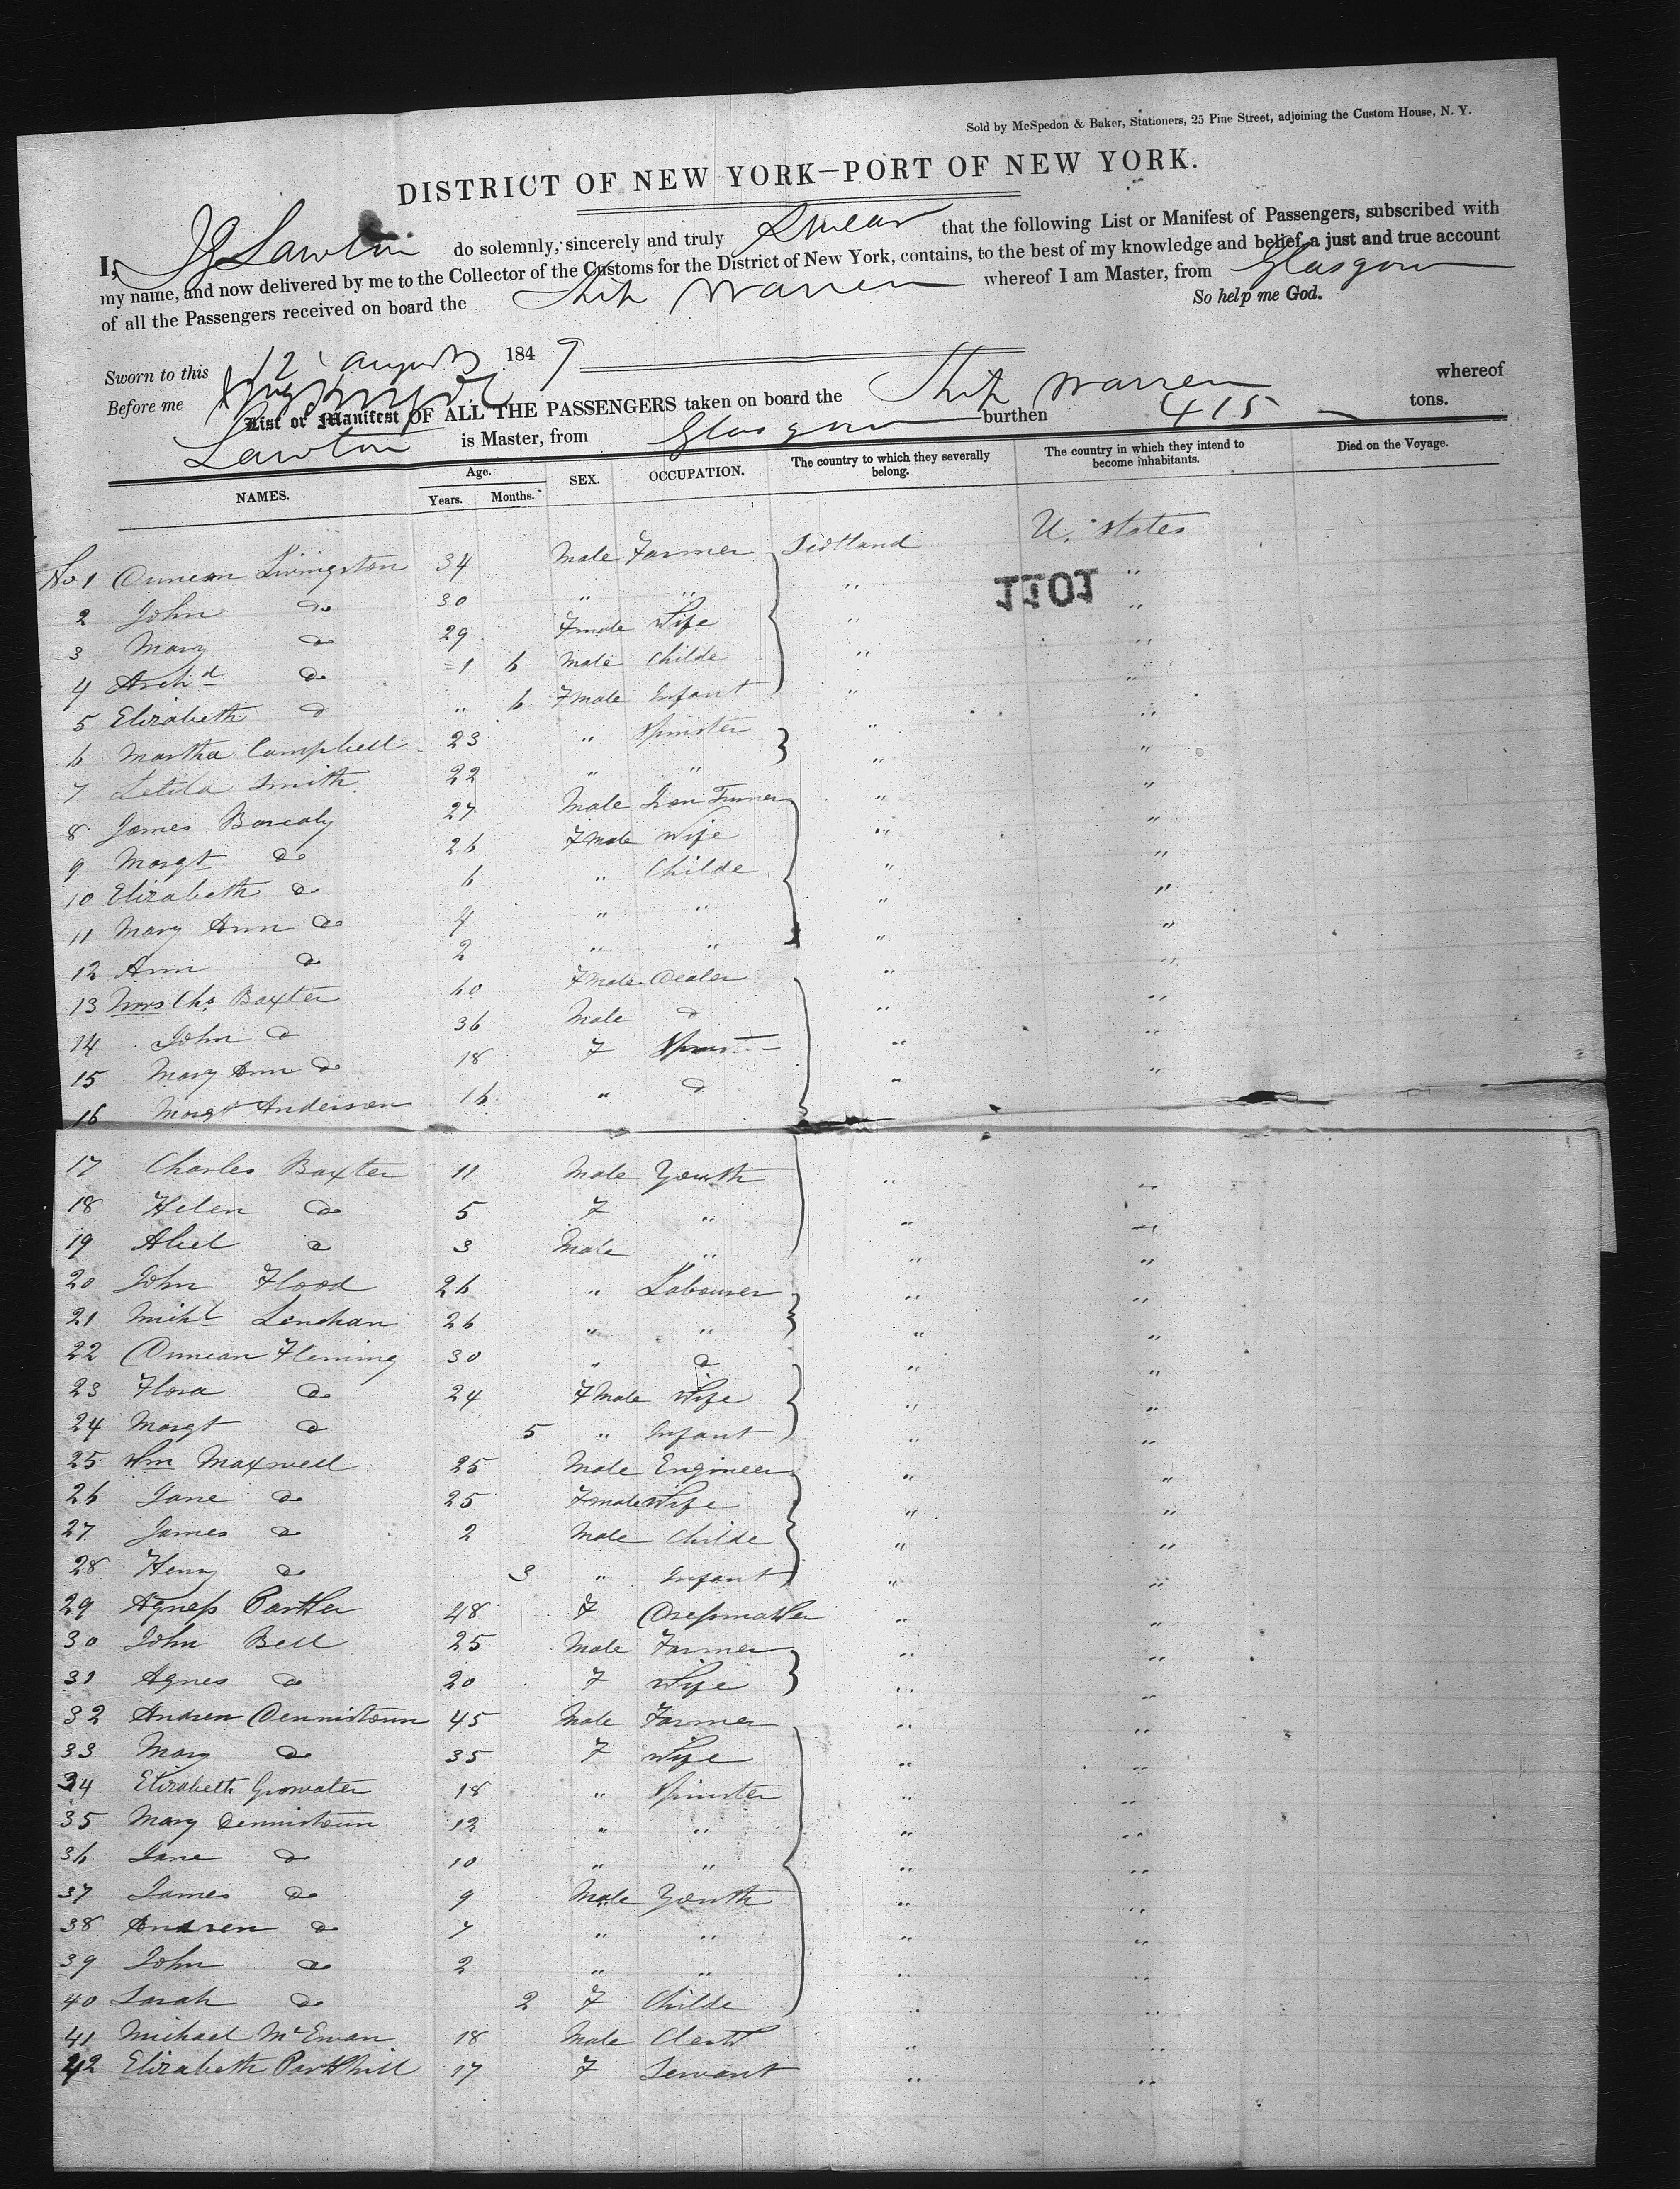 Sold by McSpedon & Baker, Stationers, 25 Pine Street, adjoining the Custom House, N. Y.
DISTRICT OF NEW YORK—PORT OF NEW YORK.
I, Lawton do solemnly, sincerely and truly Swear that the following List or Manifest of Passengers, subscribed with
my name, and now delivered by me to the Collector of the Customs for the District of New York, contains, to the best of my knowledge and belief, a just and true account
of all the Passengers received on board the Ship Warren whereof I am Master, from Glasgow
So help me God.
Sworn to this 12 August 1849
Before me
List or Manifest OF ALL THE PASSENGERS taken on board the Ship Warren whereof
Lawton is Master, from Glasgow burthen 415 tons.
NAMES. Age. Years. Months. SEX. OCCUPATION. The country to which they severally belong. The country in which they intend to become inhabitants. Died on the Voyage.
No 1 Duncan Livingston 34 Male Farmer Scotland U. States
1101
2 John Do 30 " " " "
3 Mary Do 29 Fmale Wife " "
4 Archd Do 1 6 Male Childe " "
5 Elizabeth Do " 6 Fmale Infant " "
6 Martha Campbell 23 " Spinster " "
7 Smith 22 " " " "
8 James 27 Male Iron Turner " "
9 Margt Do 26 Fmale Wife " "
10 Elizabeth Do 6 " Childe " "
11 Mary Ann Do 4 " " " "
12 Ann Do 2 " " " "
13 Mrs Chs Baxter 60 Fmale Dealer " "
14 John Do 36 Male Do " "
15 Mary Ann Do 18 F " "
16 Margt Anderson 16 " Do " "
17 Charles Baxter 11 Male Youth " "
18 Helen Do 5 F " " "
19 Do 3 Male " " "
20 John Flood 26 " Labourer " "
21 Michl Lenehan 26 " " " "
22 Duncan Fleming 30 " Do " "
23 Flora Do 24 Fmale Wife " "
24 Margt Do 5 " Infant " "
25 Wm Maxwell 25 Male Engineer " "
26 Jane Do 25 Fmale Wife " "
27 James Do 2 Male Childe " "
28 Henry Do 3 " Infant " "
29 Agness Parker 48 F Dressmaker " "
30 John Bell 25 Male Farmer " "
31 Agnes Do 20 F Wife " "
32 Andrew Dennistoun 45 Male Farmer " "
33 Mary Do 35 F Wife " "
34 Elizabeth 18 " Spinster " "
35 Mary Dennistoun 12 " " " "
36 Jane Do 10 " " " "
37 James Do 9 Male Youth " "
38 Andrew Do 7 " " " "
39 John Do 2 " " " "
40 Sarah Do 2 F Childe " "
41 Michael McEwan 18 Male Clerk " "
42 Elizabeth Parkhill 17 F Servant " "